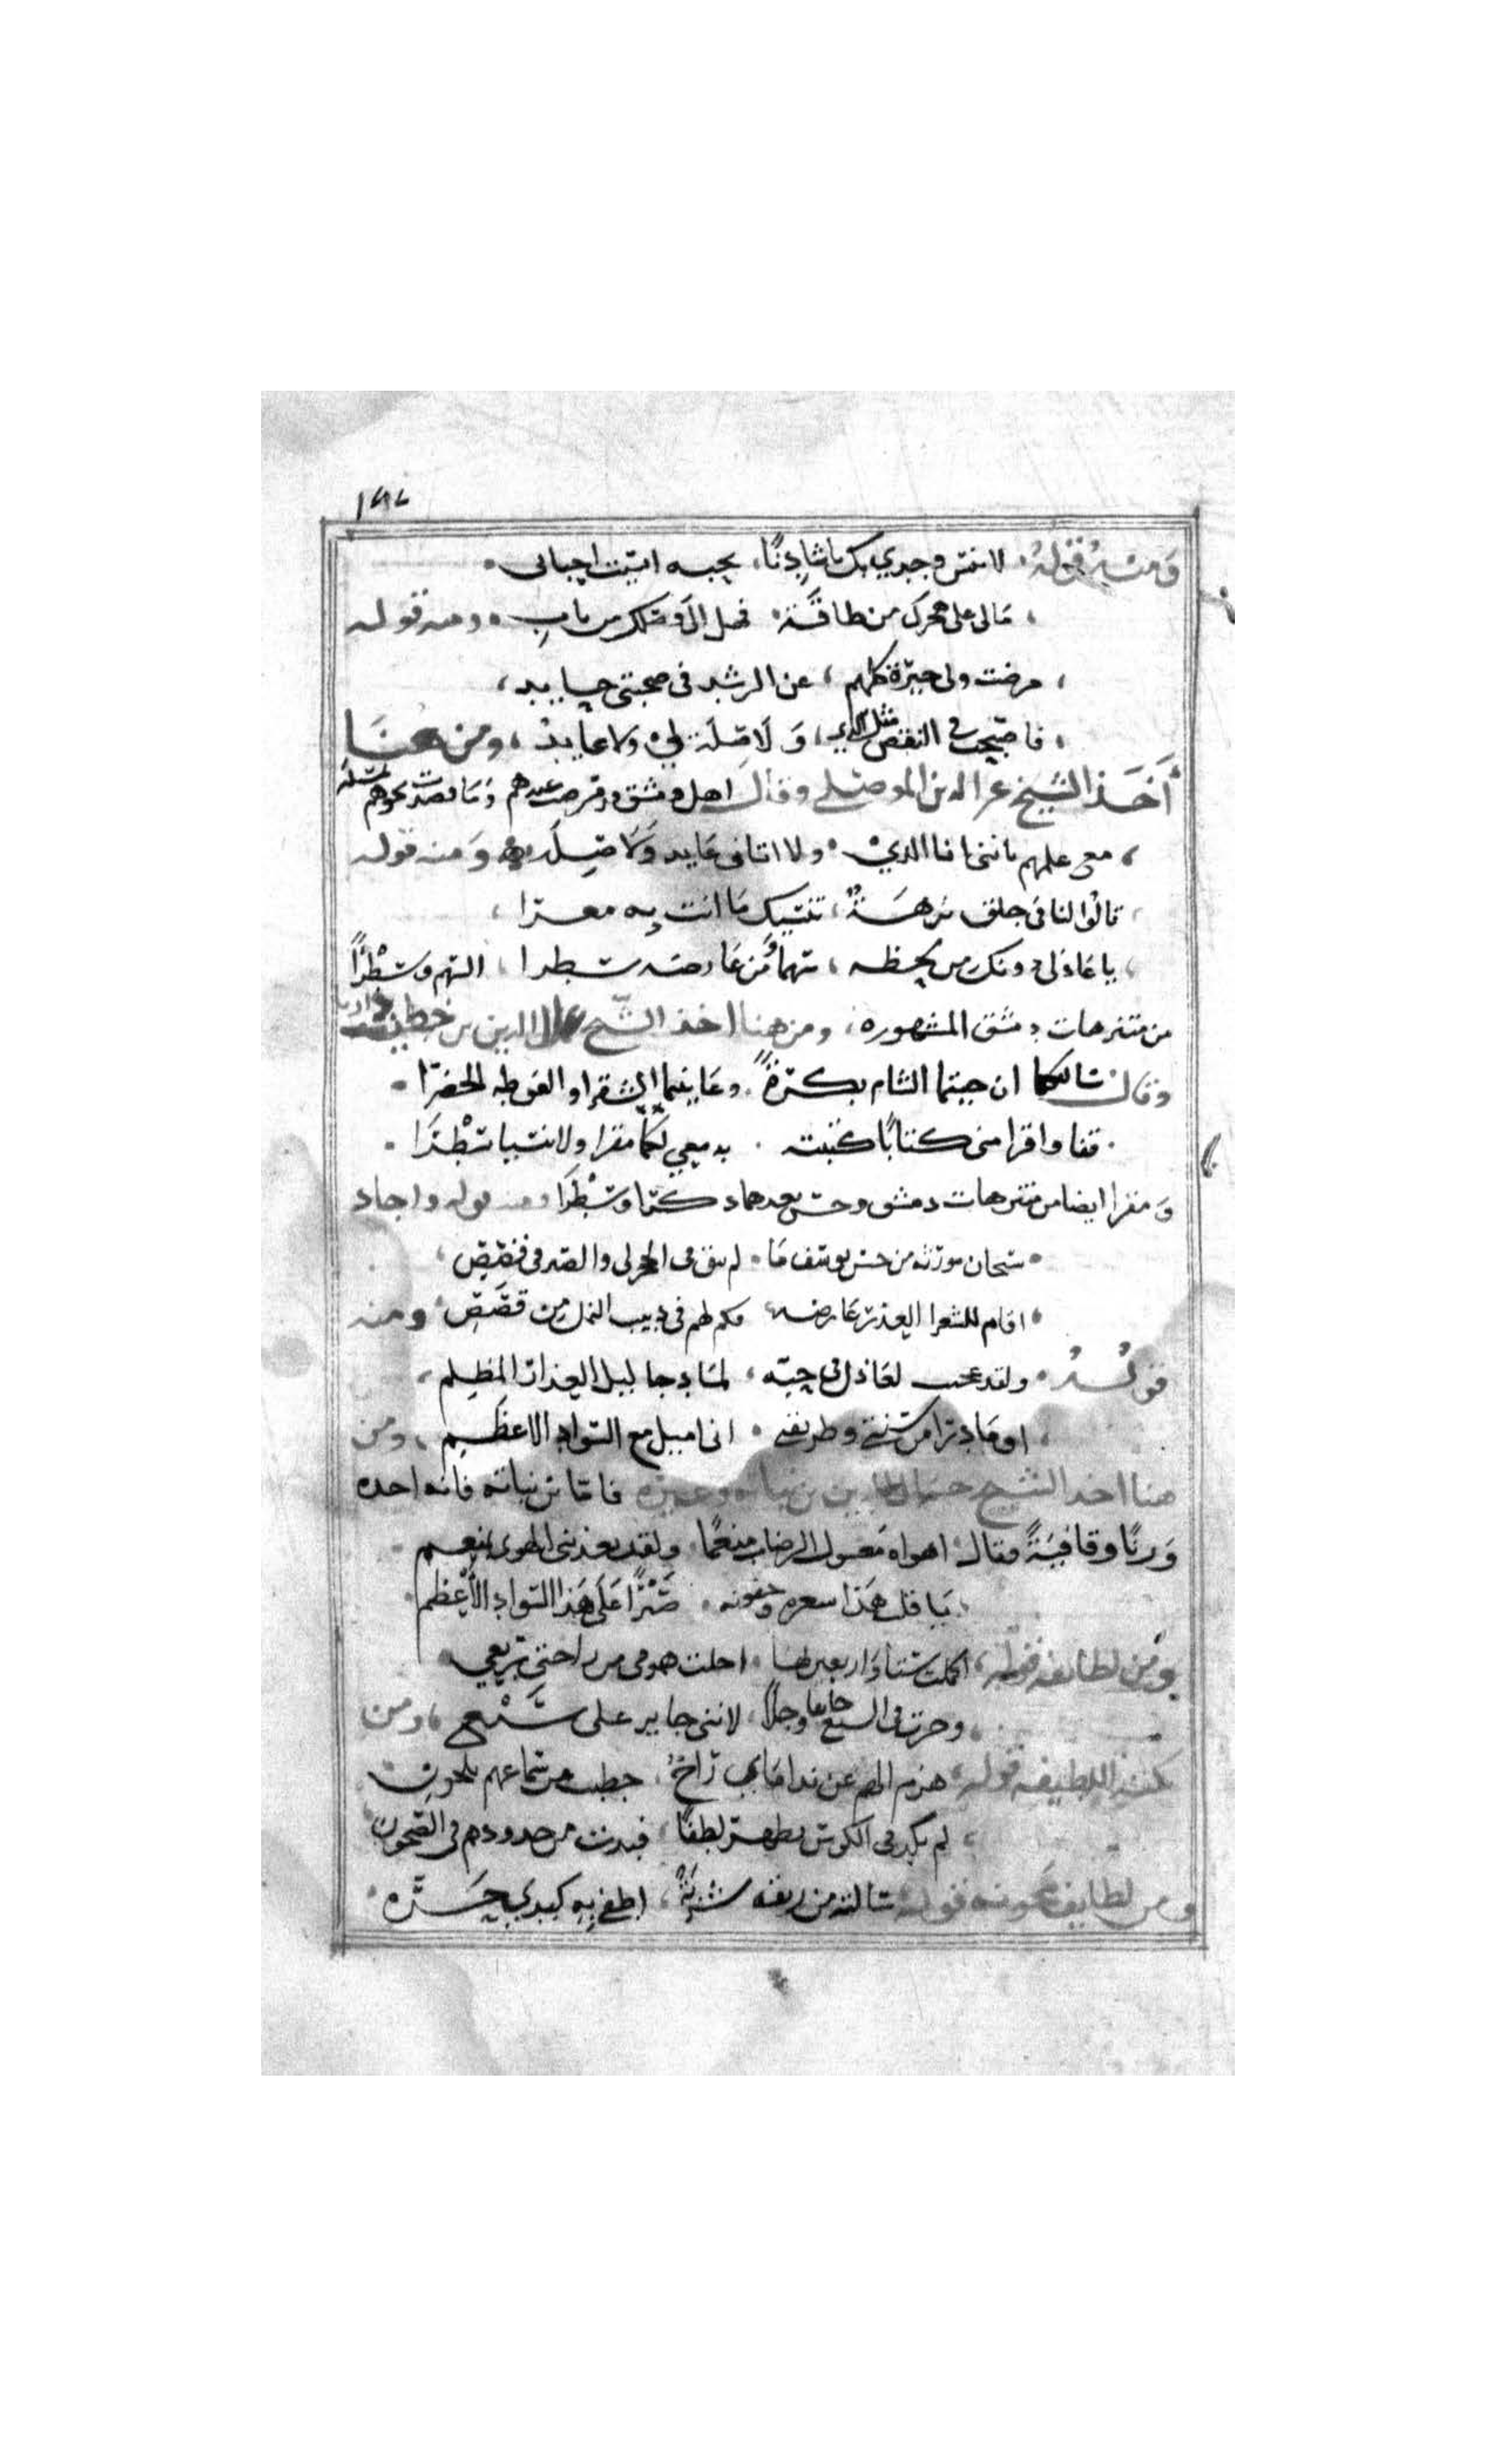 ١٨٧
ومنه قوله لا تنس وجدي بك يا شادنا، بحبه انسيت احبابى
مالى على هجرك من طاقة، فهل الى وصلك من باب، ومنه قوله
مرضت ولى جيرة كلهم، عن الرشد فى صحبتى حايد،
فاصبحت فى النقص مثل الذي، ولا صلة لي ولا عايد، ومن هنا
أخذ الشيخ عز الدين الموصلى وقال اهل دمشق مرضت عندهم وما قصدت نحوهم
مع علمهم باننى انا الذي ولا اتانى عايد ولا صله ومنه قوله
قالوا لنا فى جلق نزهة، تنسيك ما انت به مغرا،
يا عاذلى دونك من لحظه، سهما ومن عارضه سطرا، السهم وسطرا
من متنزهات دمشق المشهوره، ومن هنا اخذ الشيخ الدين بن خطيب داريا
وقال سالتكما ان جيتما الشام بكرة، وعاينتما الشقرا والغوطه الخضرا
قفا واقرا منى كتابا كتبته، بدمعي لكما مقرا ولا تنسيا سطرا
ومقرا ايضا من متنزهات دمشق وحسن بعدهما دكرا وسطرا ومنه قوله واجاد
سبحان مورثه من حسن يوسف ما، لم يبق فى الحجر لى والصبر فى قفص
اقام للشعرا العذر عارضه، فكم لهم فى دبيب النمل من قصص ومنه
قوله ولقد عجبت لعاذل فى حبه، لما دجا ليل العذار المظلم،
اوما درا من سنتى وطريقتى، انى اميل مع السواد الاعظم، ومن
هنا اخذ الشيخ جمال الدين بن نباته وغيره فاما بن نباته فانه اخده
وزنا وقافية فقال اهواه معسول الرضاب منعما، ولقد يعذبنى الهوى بمنعم
يا قلب هذا شعره وجفونه، صبرا على هذا السواد الأعظم
ومن لطايفه قوله، اكملت ستا واربعين لها، اخلت همومى من راحتى ربعي
وحزت فى السبع خايفا وجلا، لاننى جاير على سبع، ومن
نكته اللطيفه قوله، هزم الهم عن ندامای راح، خطبت من سماعهم بلحون
لم تكد فى الكوس تظهر لطفا، فبدت من خدودهم فى الصحون
ومن لطايف مجونه قوله سالته من ريقه شربة، اطفى به كبدي حره